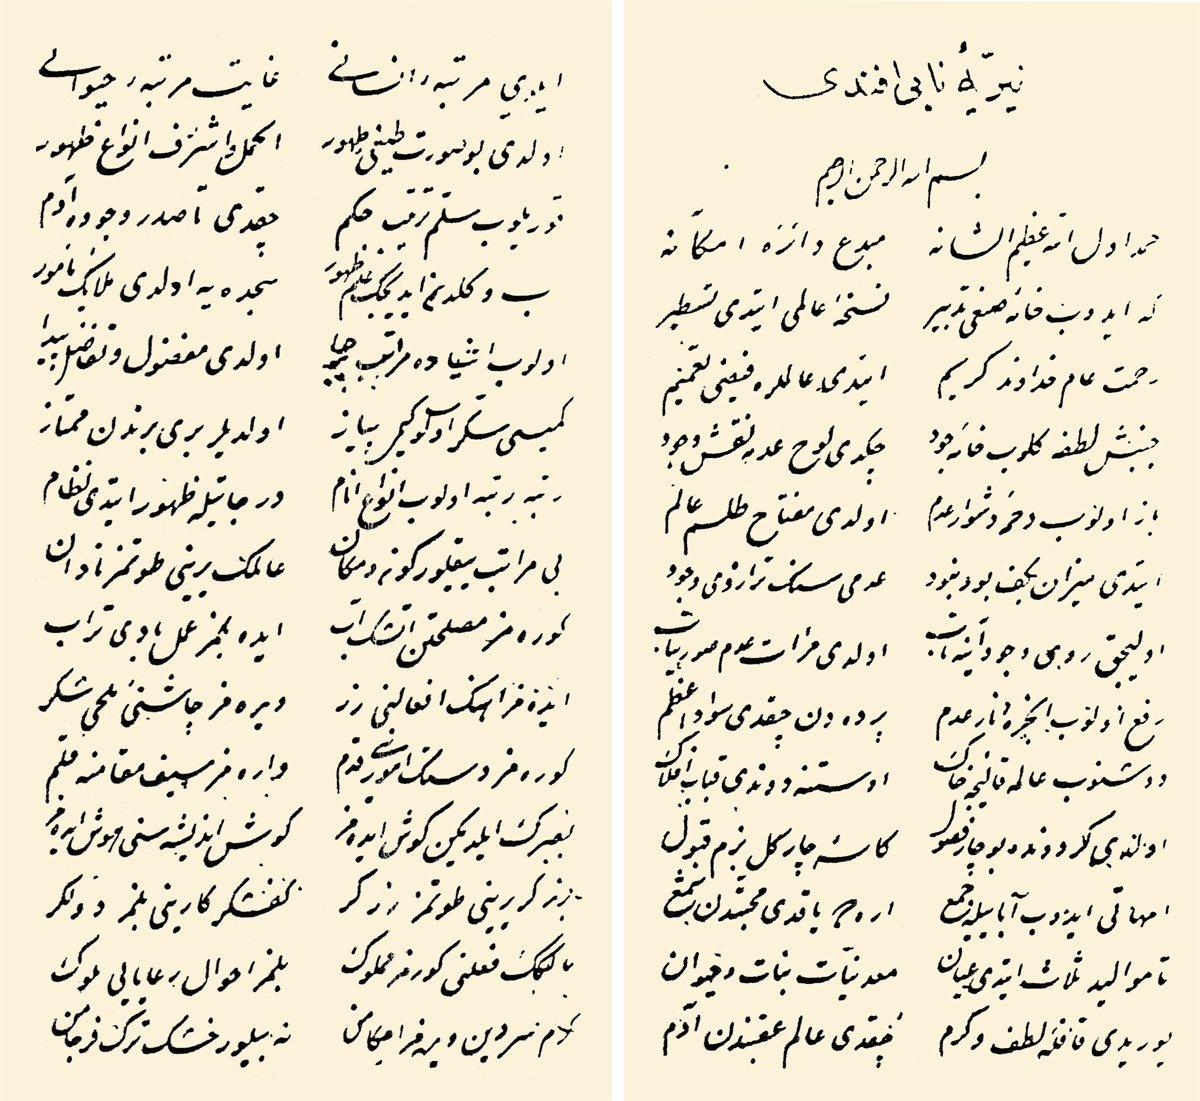 خیریهٔ نابی افندی
بسم الله الرحمن الرحیم
حمد اول الله عظیم الشانه مبدع دائرهٔ امکانه
که ایدوب خامهٔ صنعی تدبیر نسخهٔ عالمی ایتدی تسطیر
رحمت عام خداوند کریم ایتدی عالملره فیضنی تعمیم
جنبش لطفه کلوب خامهٔ جود چکدی لوح عدمه نقش وجود
باز اولنوب دخمهٔ دشوار عدم اولدی مفتاح طلسم عالم
ایتدی میزان بکف بود نبود عدمی سنک ترازوی وجود
اولیجق روی وجود آینه تاب اولدی مرآت عدم صورتیاب
رفع اولنوب انجرهٔ نار عدم پرده دن چقدی سواد اعظم
دوشنوب عالمه قالیچهٔ خاک اوستنه دوندی قباب افلاک
اولندی کردونده بو چار فصول کاسهٔ چار کل بزم قبول
امهاتی ایدوب آبا ایله جمع یاقدی شمع
تا موالید ثلاث ایتدی عیان معدنیات نبات و حیوان
یوریدی قافلهٔ لطف و کرم چقدی عالم عقبندن آدم
ایلدی مرتبهٔ انسانی غایت مرتبهٔ حیوانی
اولدی بو صورت طینی ظهور اکمل و اشرف انواع ظهور
قوریلوب سلم ترتیب حکم چقدی تا صدر وجوده آدم
علم ظهور سجده یه اولدی ملائک مأمور
اولوب اشیاده مراتب اولدی مفضول و تفاضل پیدا
کمیسی سکر اولوب کیمی پیاز اولدیلر بری برندن ممتاز
رتبه رتبه اولوب انواع انام درجاتیله ظهور ایتدی نظام
بی مراتب ییقلور کون و مکان عالمک یرینی طوتمز نادان
کوره مز مصلحتن آتشک آب ایده بلمز عمل بادی تراب
ایده مز آهنک افعالنی زر ویره مز چاشنئ ملحی شکر
کوره مز دستک امورینی قدم واره مز سیف مقامنه قلم
بصرک ایلدیکین کوش ایده مز کوش اندیشه سنی هوش ایده مز
برزکر یرینی طوتمز زرکر کفشکر کارینی بلمز دولکر
مالکک فعلنی کورمز مملوک بلمز احوال رعایایی ملوک
نه بیلور خشک ترک فرجامن